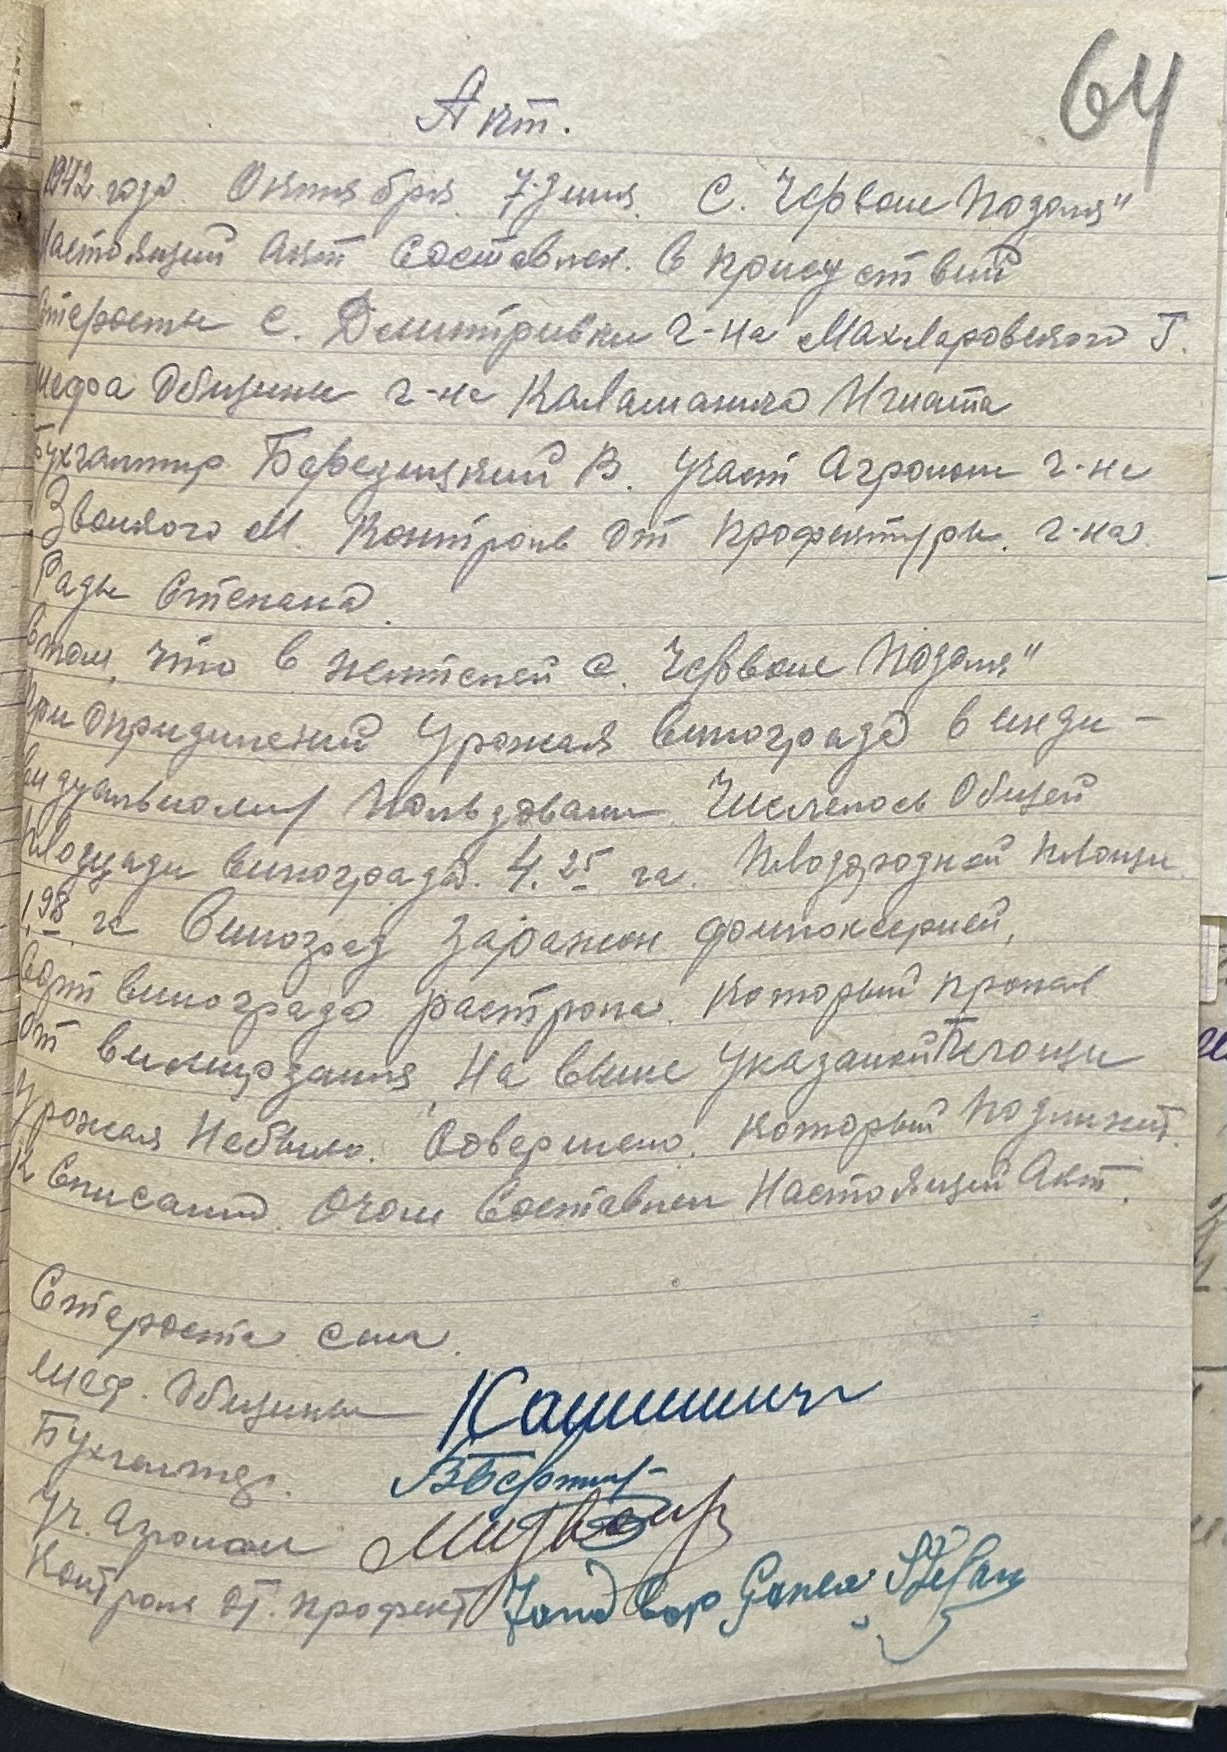 64
Акт.
1942 года Октября 7 дния. С. Червоне Подоля"
Настоящий Акт Составлен. в присуствий
старосты с. Дмитривки г-на Махларовского Г.
шефа Общины г-на Калашника Игната
бухгалтир Березицкий В. Участ Агроном г-на
Звонкого М. Контроль От префектуры. г-на
Рады Степана
втом, что в жителей с. Червоне Подоля"
При Опридилений Урожая винограда в инди-
видуальному Пользовани Числелось Общей
Площади винограда. 4.25 га. Плодородной площи
1,98 га Виноград Заражон филоксерией,
Сорт винограда растропа. который пропав
от вимирзания, На выше Указаной Площи
Урожая Небыло. Совершено. который Подлижит.
к Списанию. Очом Составлен Настоящий Акт.
Староста села.
шеф. Общины
Бухгалтер.
Уч. Агроном
Контроль От. префект Ștefan